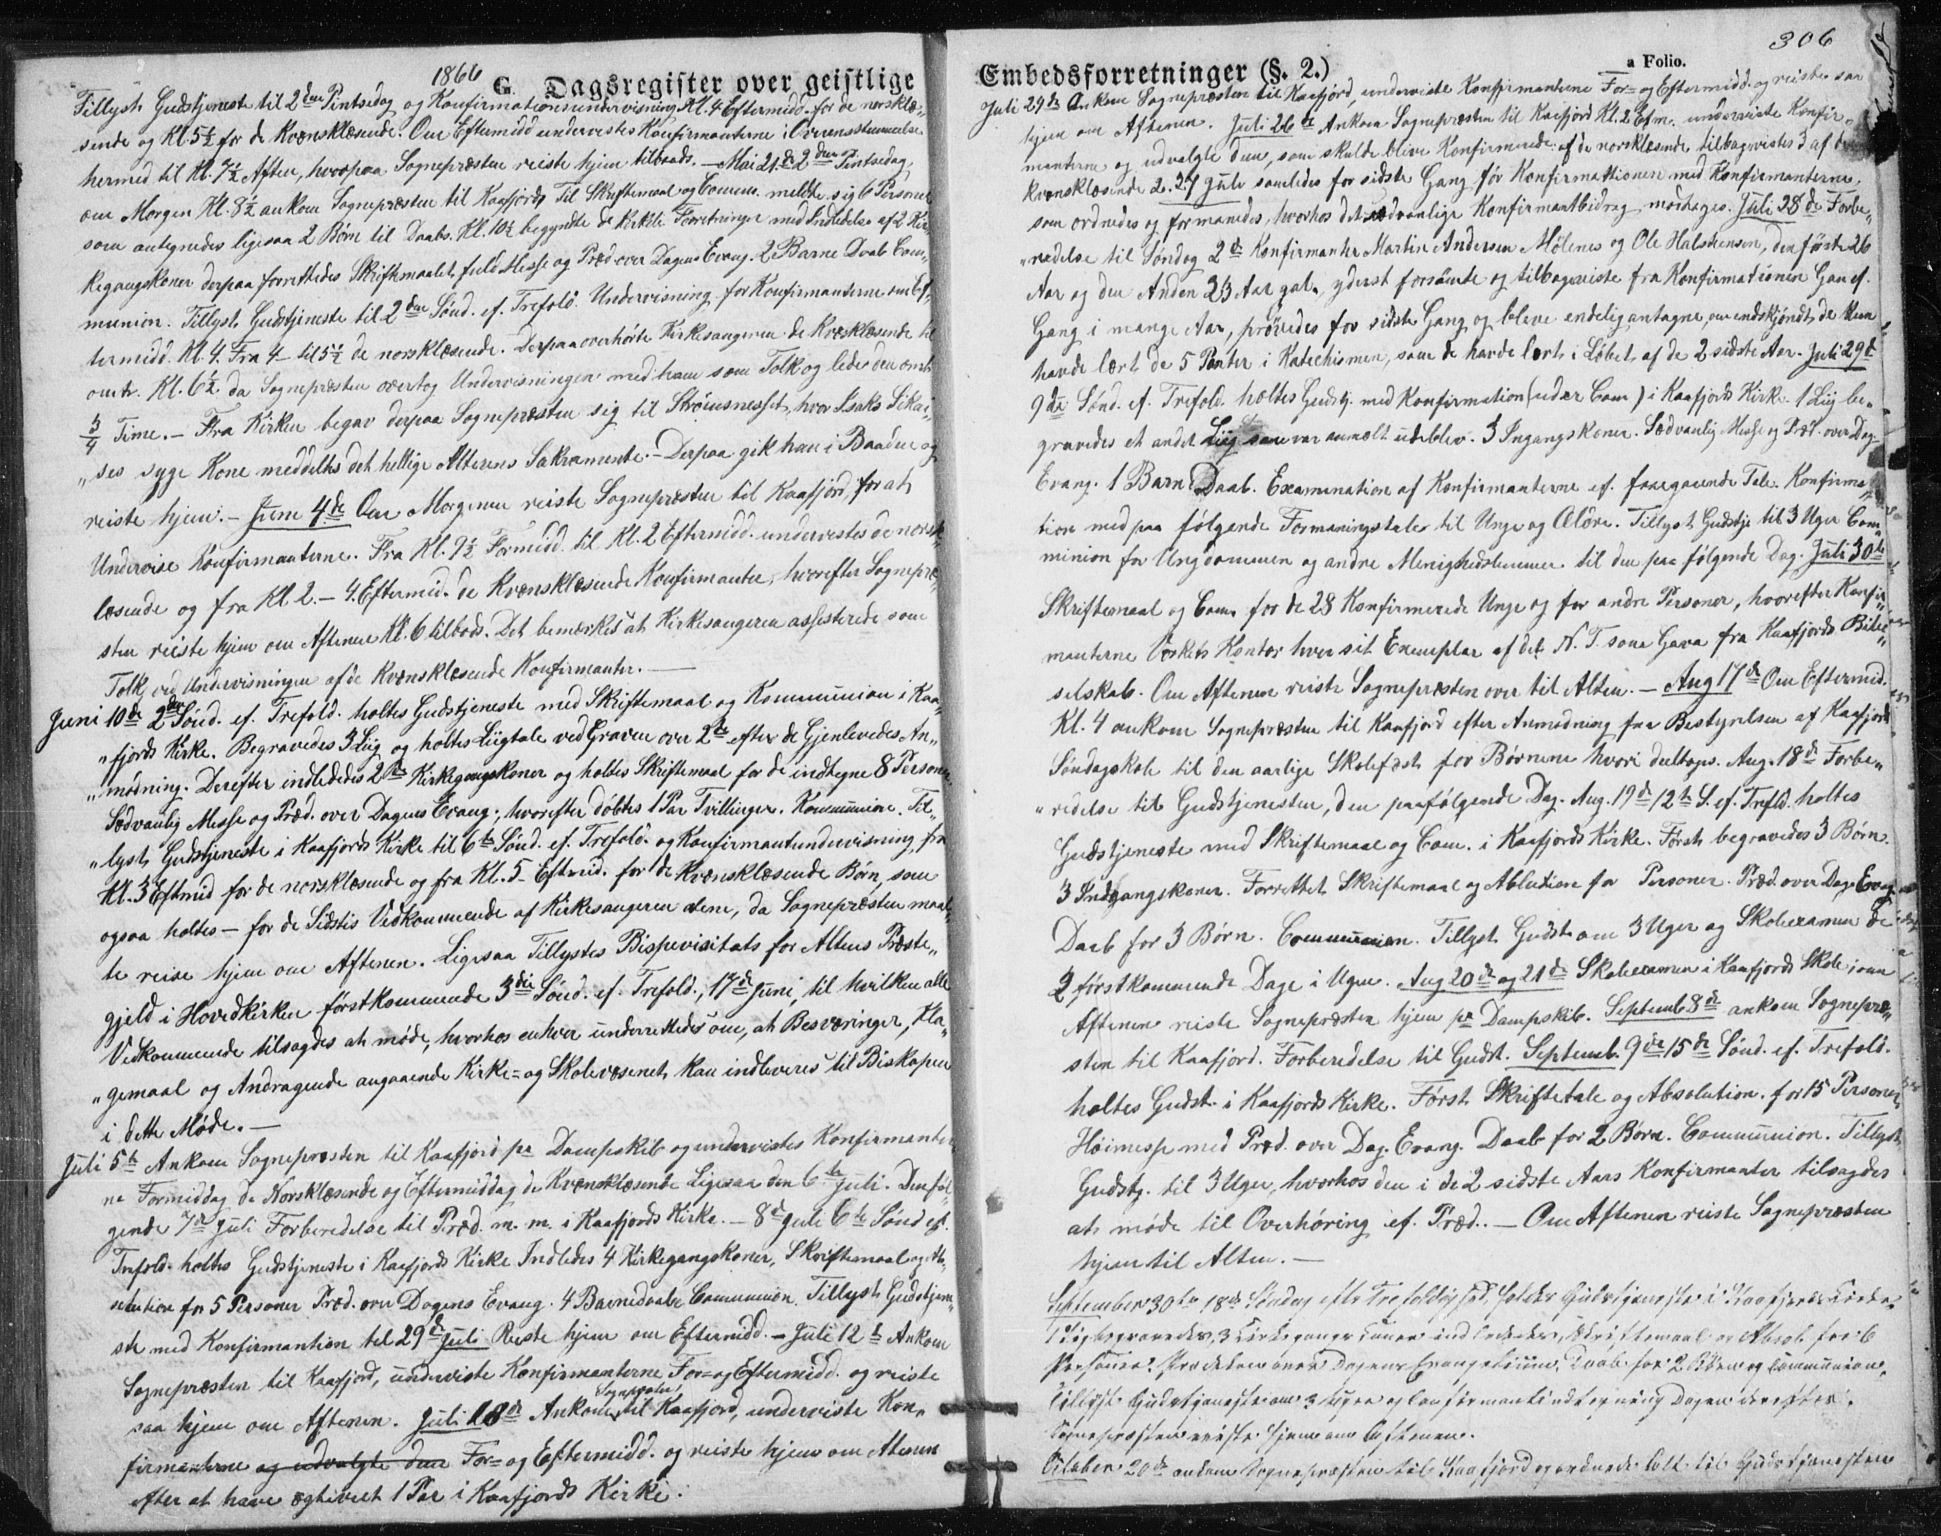 1866
G. Dagsregister over geistlige
Tillyst Gudstjeneste til 2den Pintsedag og Konfirmationsundervisning Kl. 4 Eftermidd. for de norsklæ-
sende og Kl 5½ for de Kvænsklæsende. Om Eftermidd undervistes Konfirmanterne i Overensstemmelse
hermed til Kl. 7½ Aften, hvorpaa Sognepræsten reiste hjem tilbaads. — Mai 21de 2den Pintsedag,
om Morgen Kl. 8½ ankom Sognepræsten til Kaafjord. Til Skriftemaal og Commun. meldte sig 6 Personer
som antegnedes ligesaa 2 Børn til Daabs. Kl. 10½ begyndte de kirkelige Forretninger med Indledelse af 2 Kir-
kegangskoner derpaa forrettedes Skriftemaalet, fuld Messe og Præd. over Dagens Evang. 2 Barne Daab Com-
munion. Tillyst Gudstjeneste til 2den Sønd. ef. Trefold. Undervisning for Konfirmanterne om Ef-
termidd. Kl. 4. Fra 4 til 5½ de norsklæsende. Derpaa overhørte Kirkesangeren de Kvæsklæsende til
omtr. Kl. 6½ da Sognepræsten overtog Undervisningen med ham som Tolk og lededen omtr
¾ Time. — Fra Kirken begav derpaa Sognepræsten sig til Strömsnesset, hvor Isaks Sikai-
"ses syge Kone meddeltes det hellige Alterens Sakramente. — Derpaa gik han i Baaden og
reiste hjem. — Juni 4de Om Morgenen reiste Sognepræsten til Kaafjord for at
Undervise Konfirmanterne. Fra Kl. 9½ Formidd. til Kl. 2 Eftermidd. undervistes de norsk-
læsende og fra Kl 2. — 4. Eftermid. de Kvænsklæsende Konfirmanter, hvorefter Sognepræ-
sten reiste hjem om Aftenen Kl. 6 tilbods. Det bemærkes at Kirkesangeren assisterede som
Tolk ved Undervisningen af de Kvænsklæsende Konfirmanter. —
Juni 10de 2den Sønd. ef. Trefold. holtes Gudstjeneste med Skriftemaal og Kommunion i Kaa-
"fjords Kirke. Begravedes 3 Liig og holtes Liigtale ved Graven over 2de efter de Gjenlevedes An-
"modning. Derefter indlededes 2de Kirkegangskoner og holtes Skriftemaal for de indtegne 8 Personer
Sædvanlig Messe og Præd. over Dagens Evang., hvorefter döbtes 1 Par Tvillinger. Kommunion. Til-
"lyst Gudstjeneste i Kaafjords Kirke til 6te Sönd. ef. Trefold. og Konfirmantundervisning fra
Kl. 3 Eftmid for de norsklæsende og fra Kl. 5 Eftmid. for de Kvænsklæsende Børn, som
ogsaa holtes — for de Sidstes Vidkommende af Kirkesangeren alene, da Sognepræsten maat-
te reise hjem om Aftenen. Ligesaa Tillystes Bispevisitats for Altens Præste-
gjeld i Hovedkirken förstkommende 3die Sönd. ef. Trefold., 17de Juni, til hvilken alle
Vedkommende tilsagdes at møde, hvorhos enhver underrettedes om, at Besværinger, Kla-
"gemaal og Andragende angaaende Kirke= og Skolevæsenet kan indleveres til Biskopen
i dette Møde. —
Juli 5te Ankom Sognepræsten til Kaafjord pr Dampskib og undervistes Konfirmanter-
ne Formiddag de Norsklæsende og Eftermiddag de Kvænsklæsende Ligesaa den 6te Juli. Den föl-
gende 7de Juli Forberedelse til Præd. m. m. i Kaafjords Kirke. — 8de Juli 6te Sönd ef.
Trefold. holtes Gudstjeneste i Kaafjords Kirke Indledes 4 Kirkegangskoner, Skriftemaal og Ab-
solution for 5 Personer Præd. over Dagens Evang. 4 Barnedaabe Communion. Tillyst Gudstjene-
ste med Konfirmantion til 29de Juli Reiste hjem om Eftermidd. — Juli 12te Ankom
Sognepræsten til Kaafjord, underviste Konfirmanterne For= og Eftermidd. og reiste
saa hjem om Aftenen. Juli 18de Ankom Sognepræsten til Kaafjord, underviste Kon-
firmanterne og udvalgte dem For= og Eftermidd. og reiste hjem om Atenen
efter at have ægteviet 1 Par i Kaafjords Kirke.
306
a Folio.
Embedsforretninger (§. 2.)
Juli 29de Ankom Sognepræsten til Kaafjord, underviste Konfirmanterne For= og Eftermidd. og reiste saa
hjem om Aftenen. Juli 26de Ankom Sognepræsten til Kaafjord Kl. 2 Efm. underviste Konfir-
manterne og udvalgte dem, som skulde blive Konfirmerede af de norsklæsende tilbagevistes 3 af de
kvænsklæsende 2. 27 Juli samledes for sidste Gang før Konfirmationen med Konfirmanterne,
som ordnedes og formanedes, hvorhos det sædvanlige Konfirmantbidrag modtages. Juli 28de Forbe-
"redelse til Søndag 2de Konfirmanter Martin Andersen Mölenes og Ole Halstensen, den første 26
Aar og den Anden 23 Aar gal. yderst forsömte og tilbageviste fra Konfirmationen Gan ef.
Gang i mange Aar, prövedes for sidste Gang og bleve endelig antagne, om endskjøndt de kun
havde lært de 5 Parter i Katechismen, som de havde lært i Løbet af de 2 sidste Aar. Juli 29de
9de Sönd. ef. Trefold. holtes Gudstj. med Konfirmation (uden Com) i Kaafjords Kirke. 1 Liig be-
gravedes et andet Liig som var anmælt udeblev. 3 Ingangskoner. Sædvanlig Messe og Præd. over Dag
Evang. 1 Barne Daab. Examination af Konfirmanterne ef. foregaaende Tale. Konfirma-
tion med paa følgende Formaningstaler til Unge og Ældre. Tillyst Gudstje til 3 Uger Com-
minion for Ungdommen og andre Menighedslemmer til den paa følgende Dag. Juli 30te
Skriftemaal og Com for de 28 Konfirmerede Unge og for andre Personer, hvorefter Konfir-
manterne Kontor hver sit Exemplar af det N. T. som Gava fra Kaafjords Bibel-
selskab. Om Aftenen reiste Sognepræsten over til Alten. — Aug 17de Om Eftermid.
Kl. 4 ankom Sognepræsten til Kaafjord efter Anmodning fra Bestyrelsen af Kaafjords
Søndagskole til den aarlige Skolefæst for Børnene hvori deeltoges. Aug. 18de Forbe-
"redelse til Gudstjenesten, den paafölgende Dag. Aug. 19de 12te S. ef. Trefld. holtes
Gudstjeneste med Skriftemaal og Com. i Kaafjords Kirke. Først begravedes 3 Børn.
3 Indgangskoner. Forrettet Skriftemaal og Ablution for Personer. Præd. over Dag. Evag
Daab for 3 Børn. Communion. Tillyst Gudst om 3 Uger og Skoleexamen de
2 förstkommende Dage i Ugen. Aug 20de og 21de Skoleexamen i Kaafjords Skole; om
Aftenen reiste Sognepræsten hjem pr Dampskib. Septemb 8de ankom Sognepræ-
sten til Kaafjord. Forberedelse til Gudst. Septemb. 9de 15de Sönd. ef. Trefold.
holtes Gudst. i Kaafjords Kirke. Först Skriftetale og Absolution. for 15 Personer,
Høimesse med Præd. over Dag. Evang. Daab for 2 Børn. Communion. Tillyst
Gudstj. til 3 Uger, hvorhos den i de 2 sidste Aars Konfirmanter tilsagdes
at möde til Overhöring ef. Præd. — Om Aftenen reiste Sognepræsten
hjem til Alten. —
September 30te 18de Söndag efter Trefoldighed, holdes Gudstjeneste i Kaafjords Kirke.
1 Lig begravedes, 3 Kirkegangs Koner indlededes, Skriftemaal og Absol. for 6
Personer. Prædiken over Dagens Evangelium, Daab for 2 Börn og Communion,
Tillyst Gudstjeneste om 3 Uger og Confirmantindtegning Dagen derefter.
Sognepræsten reiste hjem om Aftenen.
October 20de ankom Sognepræsten til Kaafjord og ordnede Alt til Gudstjenesten